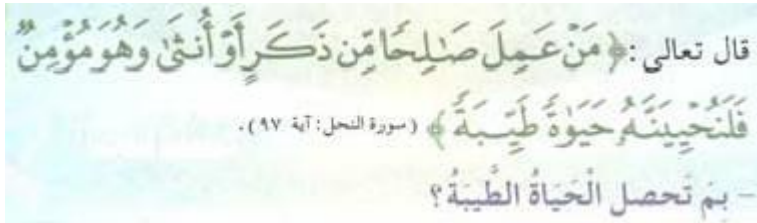 قال تعالى: ﴿ مَنْ عَمِلَ صَـٰلِحًا مِّن ذَكَرٍ أَوْ أُنثَىٰ وَهُوَ مُؤْمِنٌ
فَلَنُحْيِيَنَّهُۥ حَيَوٰةً طَيِّبَةً ﴾ (سورة النحل: آية ٩٧).
- بِمَ تَحصل الْحَيَاةُ الطَّيِّبَةُ؟